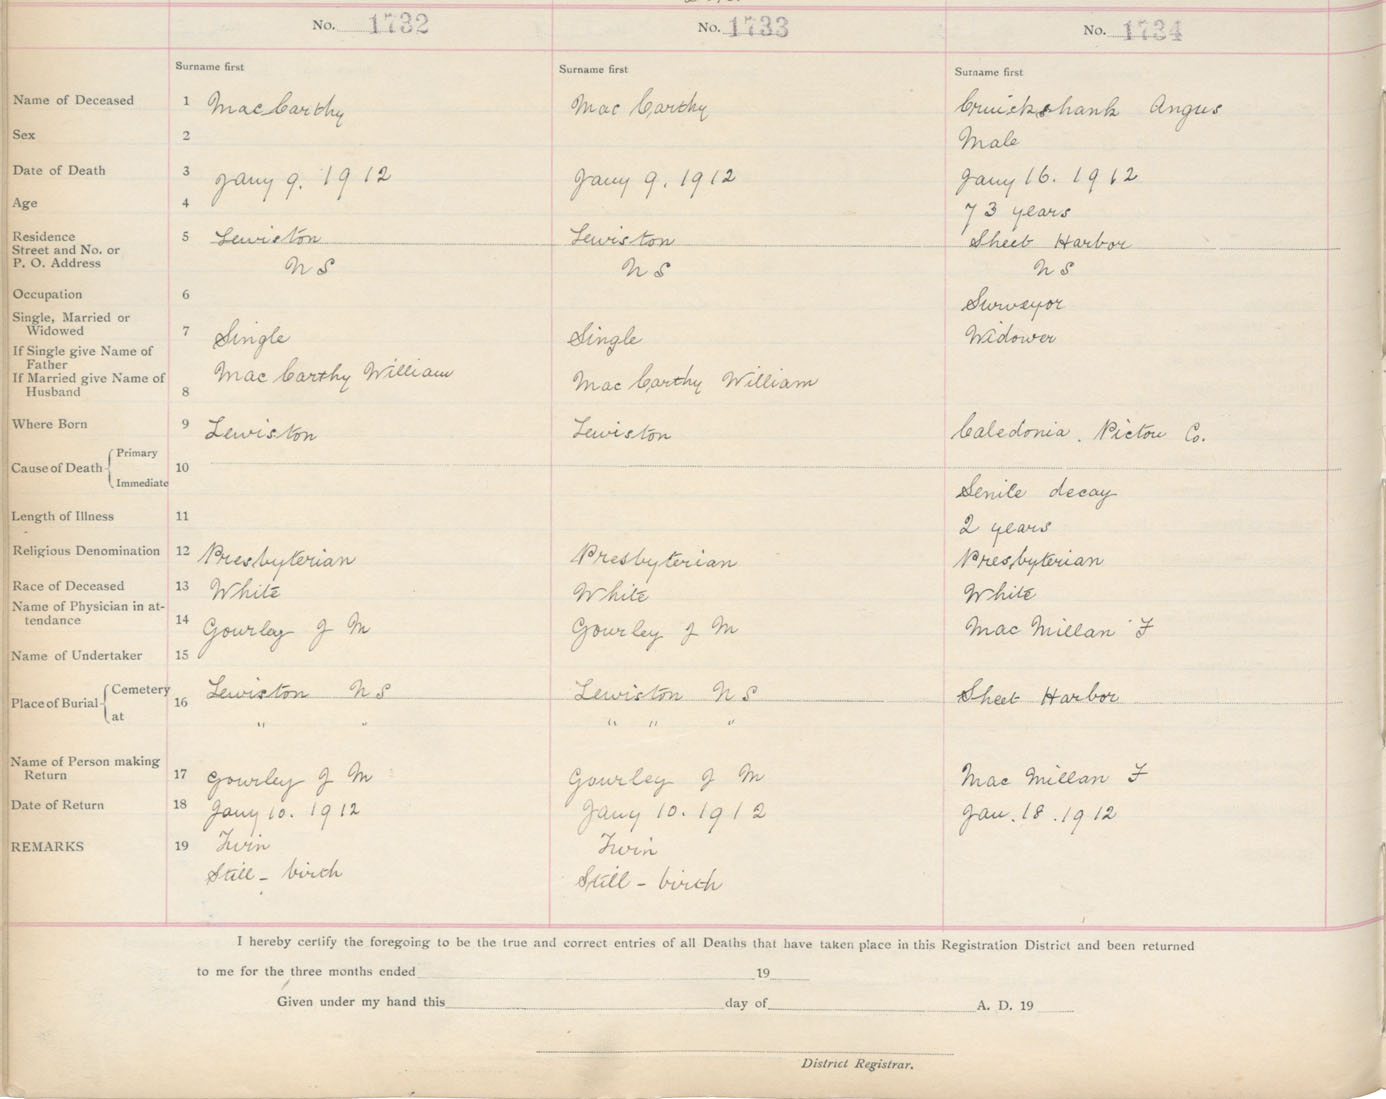 No. 1732 No. 1733 No. 1734
Surname first Surname first Surname first
Name of Deceased 1 MacCarthy Mac Carthy Cruickshank Angus
Sex 2 Male
Date of Death 3 Jany 9. 1912 Jany 9. 1912 Jany 16. 1912
Age 4 73 years
Residence 5 Lewiston Lewiston Sheet Harbor
Street and No. or
P. O. Address N S N S N S
Occupation 6 Surveyor
Single, Married or
Widowed 7 Single Single Widower
If Single give Name of
Father
If Married give Name of Mac Carthy William Mac Carthy William
Husband 8
Where Born 9 Lewiston Lewiston Caledonia. Pictou Co.
Cause of Death Primary 10
Immediate Senile decay
Length of Illness 11 2 years
Religious Denomination 12 Presbyterian Presbyterian Presbyterian
Race of Deceased 13 White White White
Name of Physician in at-
tendance 14 Gourley J M Gourley J M Mac Millan F
Name of Undertaker 15
Place of Burial Cemetery 16 Lewiston N S Lewiston N S Sheet Harbor
at " " " " "
Name of Person making
Return 17 Gourley J M Gourley J M Mac Millan F
Date of Return 18 Jany 10. 1912 Jany 10. 1912 Jan. 18. 1912
REMARKS 19 Twin Twin
Still - birth Still - birth
I hereby certify the foregoing to be the true and correct entries of all Deaths that have taken place in this Registration District and been returned
to me for the three months ended 19
Given under my hand this day of A. D. 19
District Registrar.